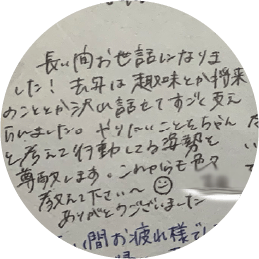 長い間お世話になりま
した！去年は趣味とか将来
のこととか沢山話せてすごく支え
られました。やりたいことをちゃん
と考えて行動してる姿勢を
尊敬します。これからも色々
教えて下さい〜☺
ありがとうございました
間お疲れ様でし